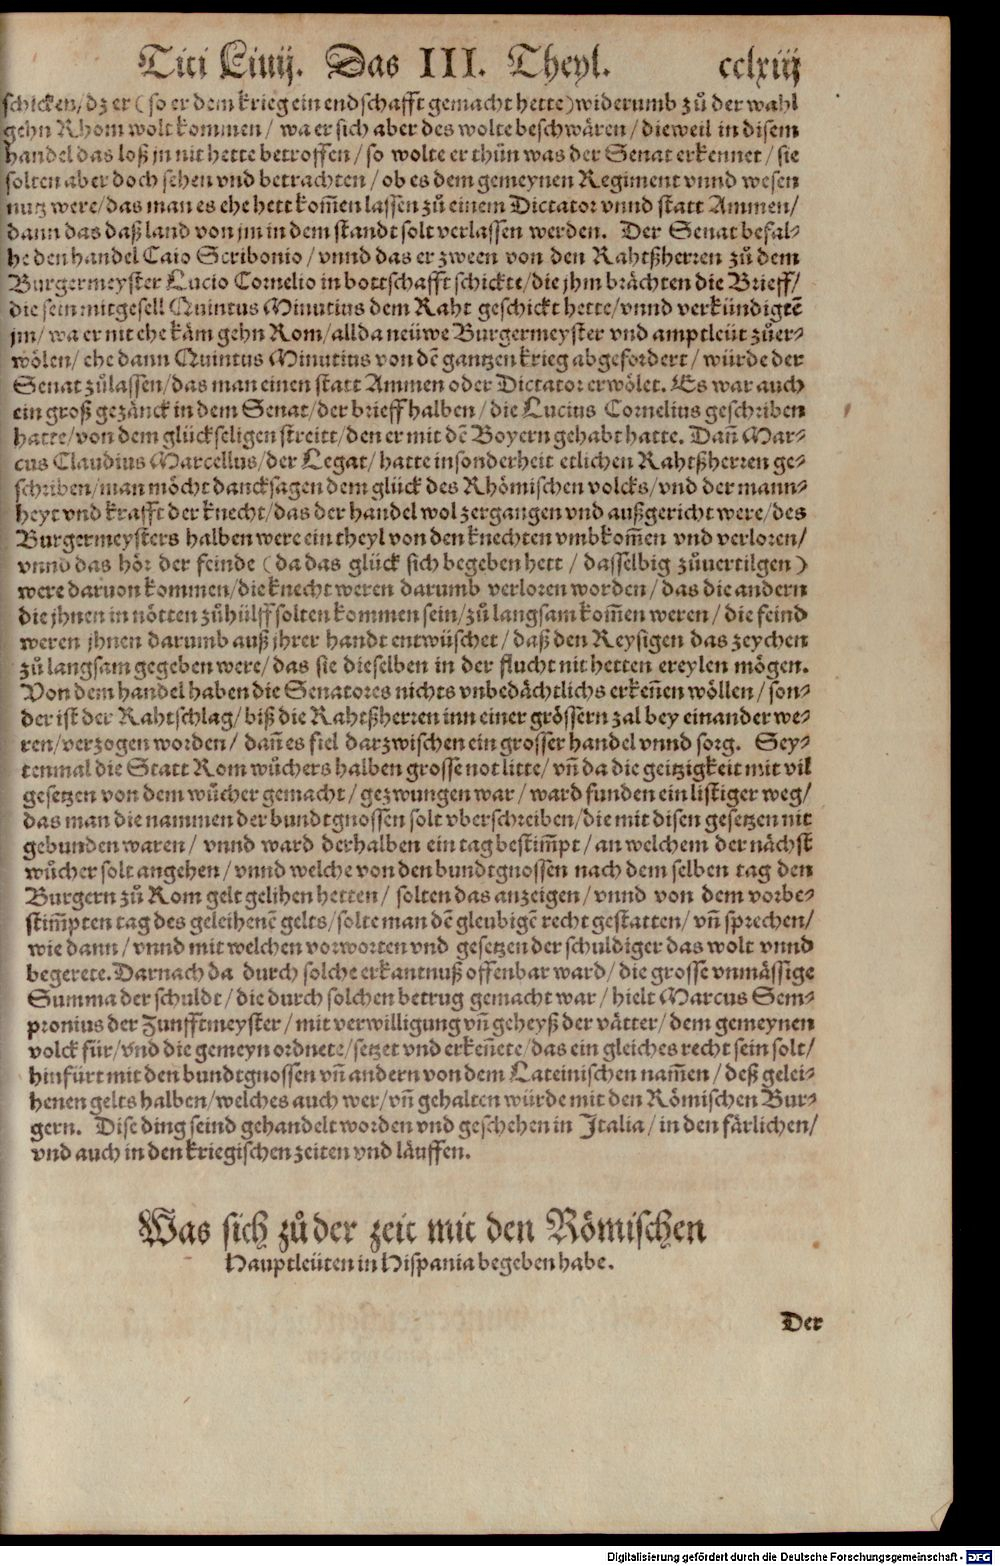 Titi Liuij. Das III. Theyl. cclxiij
schicken/dz er (so er dem krieg ein endschafft gemacht hette) widerumb zů der wahl
gehn Rhom wolt kommen/ wa er sich aber des wolte beschwären/ dieweil in disem
handel das loß jn nit hette betroffen/ so wolte er thůn was der Senat erkennet/ sie
solten aber doch sehen vnd betrachten/ ob es dem gemeynen Regiment vnnd wesen
nutz were/ das man es ehe hett kom̃en lassen zů einem Dictator vnnd statt Ammen/
dann das daß land von jm in dem standt solt verlassen werden. Der Senat befal-
he den handel Caio Scribonio/ vnnd das er zween von den Rahtßherren zů dem
Burgermeyster Lucio Cornelio in bottschafft schickte/ die jhm brächten die Brieff/
die sein mitgesell Quintus Minutius dem Raht geschickt hette/ vnnd verkündigtẽ
jm/ wa er nit ehe käm gehn Rom/ allda neüwe Burgermeyster vnd amptleüt zůer-
wölen/ ehe dann Quintus Minutius von dẽ gantzen krieg abgefordert/ würde der
Senat zůlassen/ das man einen statt Ammen oder Dictator erwölet. Es war auch
ein groß gezänck in dem Senat/ der brieff halben/ die Lucius Cornelius geschriben
hatte/ von dem glückseligen streitt/ den er mit dẽ Boyern gehabt hatte. Dañ Mar-
cus Claudius Marcellus/ der Legat/ hatte insonderheit etlichen Rahtßherren ge-
schriben/ man möcht dancksagen dem glück des Rhömischen volcks/ vnd der mann-
heyt vnd krafft der knecht/ das der handel wol zergangen vnd außgericht were/ des
Burgermeysters halben were ein theyl von den knechten vmbkom̃en vnd verloren/
vnnd das hör der feinde (da das glück sich begeben hett/ dasselbig zůuertilgen)
were daruon kommen/ die knecht weren darumb verloren worden/ das die andern
die jhnen in nötten zůhülff solten kommen sein/ zů langsam kom̃en weren/ die feind
weren jhnen darumb auß jhrer handt entwüschet/ daß den Reysigen das zeychen
zů langsam gegeben were/ das sie dieselben in der flucht nit hetten ereylen mögen.
Von dem handel haben die Senatores nichts vnbedächtlichs erkeñen wöllen/ son-
der ist der Rahtschlag/ biß die Rahtßherren inn einer grössern zal bey einander we-
ren/ verzogen worden/ dañ es fiel darzwischen ein grosser handel vnnd sorg. Sey-
tenmal die Statt Rom wůchers halben grosse not litte/ vñ da die geitzigkeit mit vil
gesetzen von dem wůcher gemacht/ gezwungen war/ ward funden ein listiger weg/
das man die nammen der bundtgnossen solt vberschreiben/ die mit disen gesetzen nit
gebunden waren/ vnnd ward derhalben ein tag bestim̃pt/ an welchem der nächst
wůcher solt angehen/ vnnd welche von den bundtgnossen nach dem selben tag den
Burgern zů Rom gelt gelihen hetten/ solten das anzeigen/ vnnd von dem vorbe-
stim̃pten tag des geleihenẽ gelts/ solte man dẽ gleubigẽ recht gestatten/ vñ sprechen/
wie dann/ vnnd mit welchen vorworten vnd gesetzen der schuldiger das wolt vnnd
begerete. Darnach da durch solche erkantnuß offenbar ward/ die grosse vnmässige
Summa der schuldt/ die durch solchen betrug gemacht war/ hielt Marcus Sem-
pronius der Zunfftmeyster/ mit verwilligung vñ geheyß der vätter/ dem gemeynen
volck für/ vnd die gemeyn ordnete/ setzet vnd erkeñete/ das ein gleiches recht sein solt/
hinfürt mit den bundtgnossen vñ andern von dem Lateinischen nam̃en/ deß gelei-
henen gelts halben/ welches auch wer/ vñ gehalten würde mit den Römischen Bur-
gern. Dise ding seind gehandelt worden vnd geschehen in Italia/ in den färlichen/
vnd auch in den kriegischen zeiten vnd läuffen.
Was sich zů der zeit mit den Römischen
Hauptleüten in Hispania begeben habe.
Der
Digitalisierung gefördert durch die Deutsche Forschungsgemeinschaft - DFG